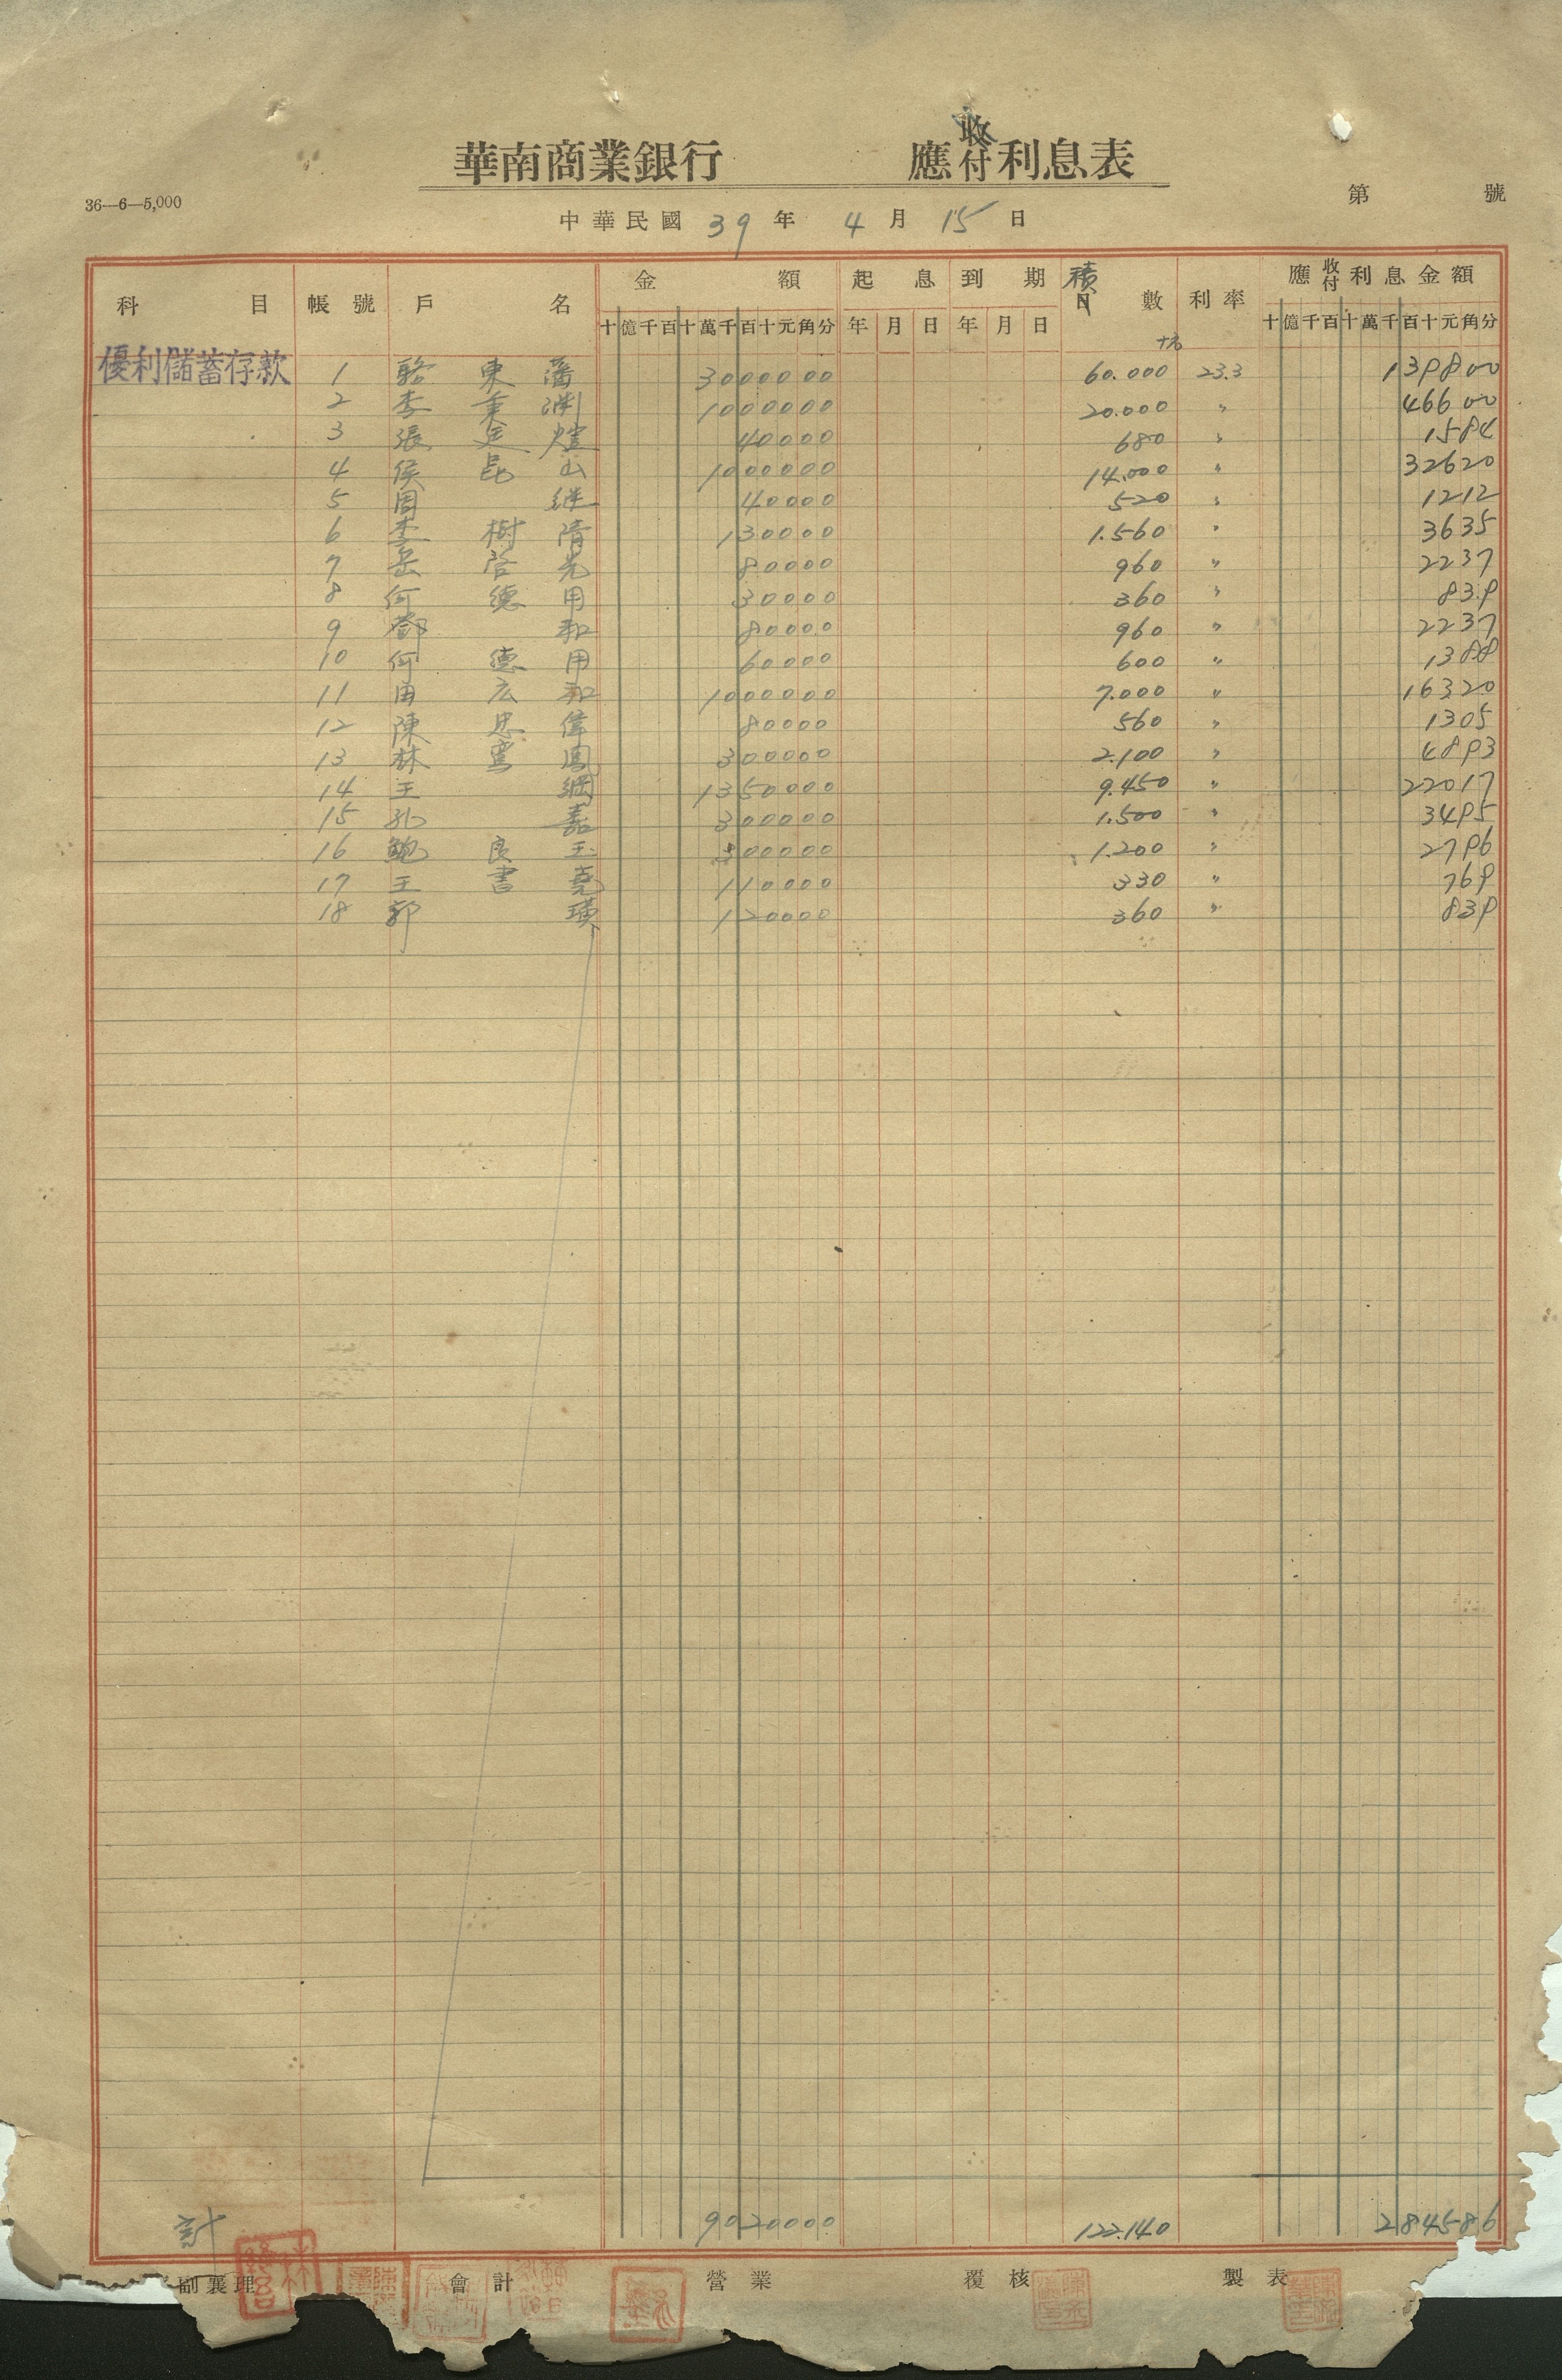 華南商業銀行 應收付利息表
36—6—5,000
第 號
中華民國 39 年 4 月 15 日
科目 帳號 戶名 金額 起息 到期 積數 利率 應收付利息金額
十億千百十萬千百十元角分 年月日 年月日 十億千百十萬千百十元角分
十元
優利儲蓄存款 1 駱東藩 30000 00 60.000 23.3 139800
2 李秉渊 1000000 20.000 〃 46600
3 張廷燈 40000 680 〃 1584
4 侯昆山 1000000 14.000 〃 32620
5 周继 40000 520 〃 1212
6 李樹清 130000 1.560 〃 3635
7 岳啓光 80000 960 〃 2237
8 何德用 30000 360 〃 839
9 鄧和 80000 960 〃 2237
10 何德用 60000 600 〃 1398
11 由広和 1000000 7.000 〃 16320
12 陳忠偉 80000 560 〃 1305
13 林鸞鳳 300000 2.100 〃 4893
14 王綱 1350000 9.450 〃 22017
15 孔嘉 300000 1.500 〃 3495
16 鮑良玉 300000 1.200 〃 2796
17 王書堯 110000 330 〃 769
18 郭璜 120000 360 〃 839
計 9020000 122.140 284586
副襄理 會計 營業 覆核 製表